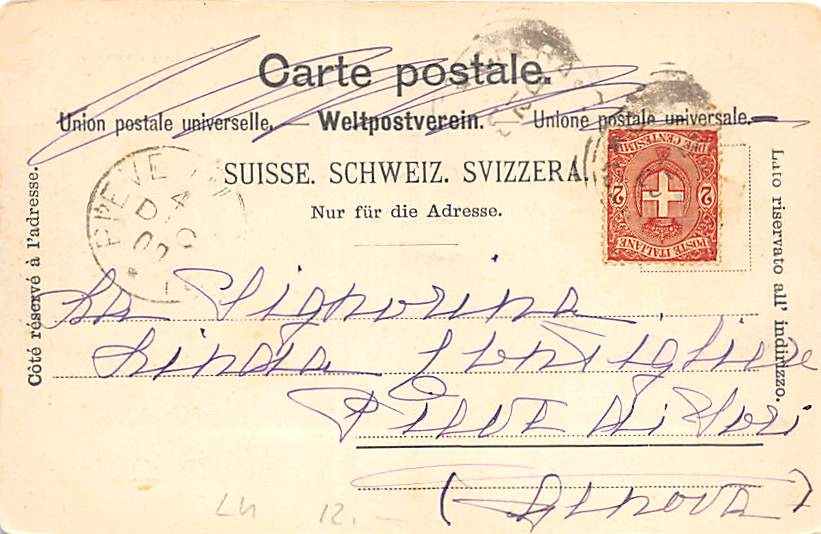 Carte postale.
Union postale universelle. — Weltpostverein. — Unione postale universale.
SUISSE. SCHWEIZ. SVIZZERA.
Nur für die Adresse.
Côté réservé à l'adresse.
Lato riservato all' indirizzo.
PIEVE
4
DIC
02
POSTE ITALIANE
2 2
DUE CENTESIMI
La Signorina
Linda
Pieve di Sori
(Genova)
LU 12.-